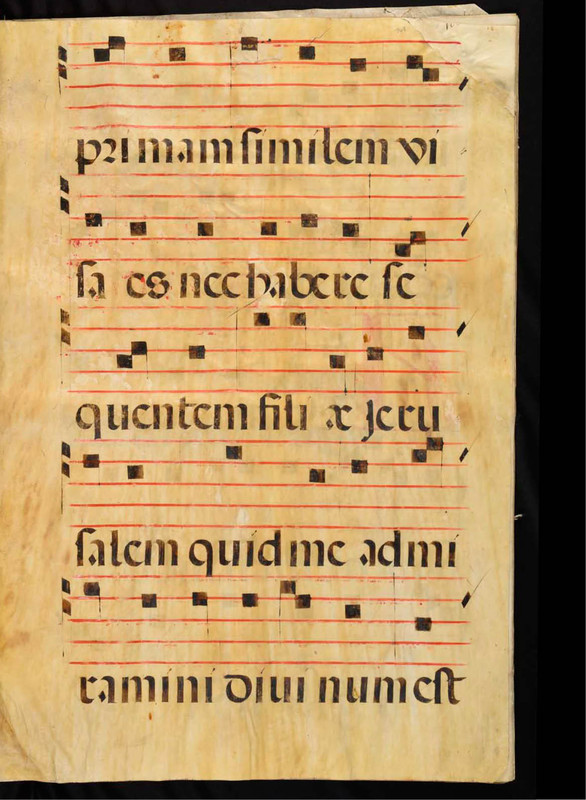 primam similem vi
sa es nec habere se
quentem fili æ jeru
salem quid me admi
ramini divi num est